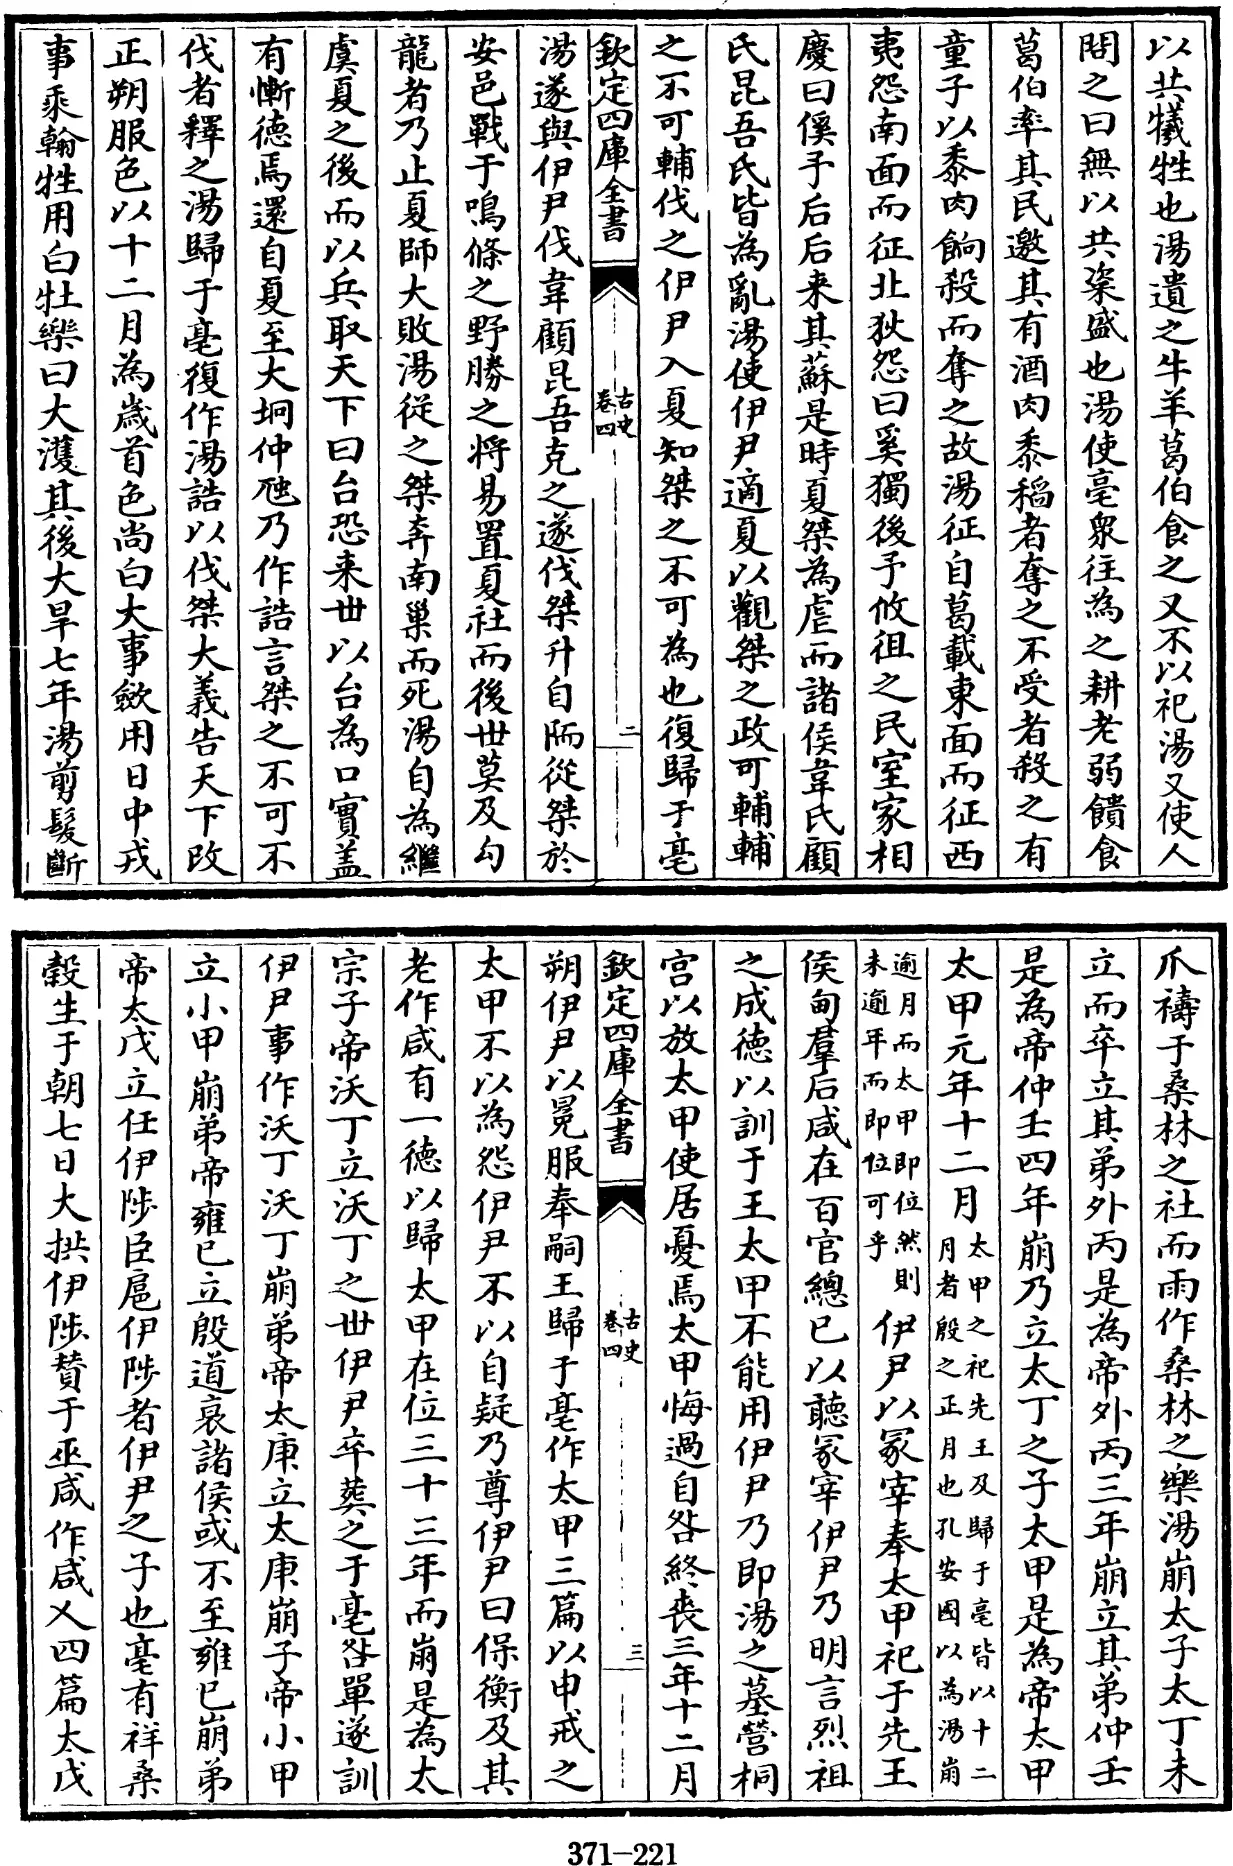 以共犧牲也湯遺之牛羊葛伯食之又不以祀湯又使人
問之曰無以共粢盛也湯使亳衆往為之耕老弱饋食
葛伯率其民邀其有酒肉黍稻者奪之不受者殺之有
童子以黍肉餉殺而奪之故湯征自葛載東面而征西
夷怨南面而征北狄怨曰奚獨後予攸徂之民室家相
慶曰徯予后后来其蘇是時夏桀為虐而諸侯韋氏顧
氏昆吾氏皆為亂湯使伊尹適夏以觀桀之政可輔輔
之不可輔伐之伊尹入夏知桀之不可為也復歸于亳
欽定四庫全書
古史
卷四
二
湯遂與伊尹伐韋顧昆吾克之遂伐桀升自陑從桀於
安邑戰于鳴條之野勝之将易置夏社而後世莫及勾
龍者乃止夏師大敗湯從之桀奔南巢而死湯自為繼
虞夏之後而以兵取天下曰台恐来世以台為口實盖
有慚德焉還自夏至大坰仲虺乃作誥言桀之不可不
伐者釋之湯歸于亳復作湯誥以伐桀大義告天下改
正朔服色以十二月為嵗首色尚白大事斂用日中戎
事乘翰牲用白牡樂曰大濩其後大旱七年湯剪髮斷
爪禱于桑林之社而雨作桑林之樂湯崩太子太丁未
立而卒立其弟外丙是為帝外丙三年崩立其弟仲壬
是為帝仲壬四年崩乃立太丁之子太甲是為帝太甲
太甲元年十二月太甲之祀先王及歸于亳皆以十二
月者殷之正月也孔安國以為湯崩
逾月而太甲即位然則
未逾年而即位可乎伊尹以冢宰奉太甲祀于先王
侯甸羣后咸在百官總已以聽冢宰伊尹乃明言烈祖
之成徳以訓于王太甲不能用伊尹乃即湯之墓營桐
宫以放太甲使居憂焉太甲悔過自咎終喪三年十二月
欽定四庫全書
古史
卷四
三
朔伊尹以冕服奉嗣王歸于亳作太甲三篇以申戒之
太甲不以為怨伊尹不以自疑乃尊伊尹曰保衡及其
老作咸有一徳以歸太甲在位三十三年而崩是為太
宗子帝沃丁立沃丁之世伊尹卒葬之于亳咎單遂訓
伊尹事作沃丁沃丁崩弟帝太庚立太庚崩子帝小甲
立小甲崩弟帝雍已立殷道衰諸侯或不至雍已崩弟
帝太戊立任伊陟臣扈伊陟者伊尹之子也亳有祥桑
榖生于朝七日大拱伊陟賛于巫咸作咸乂四篇太戊
371-221